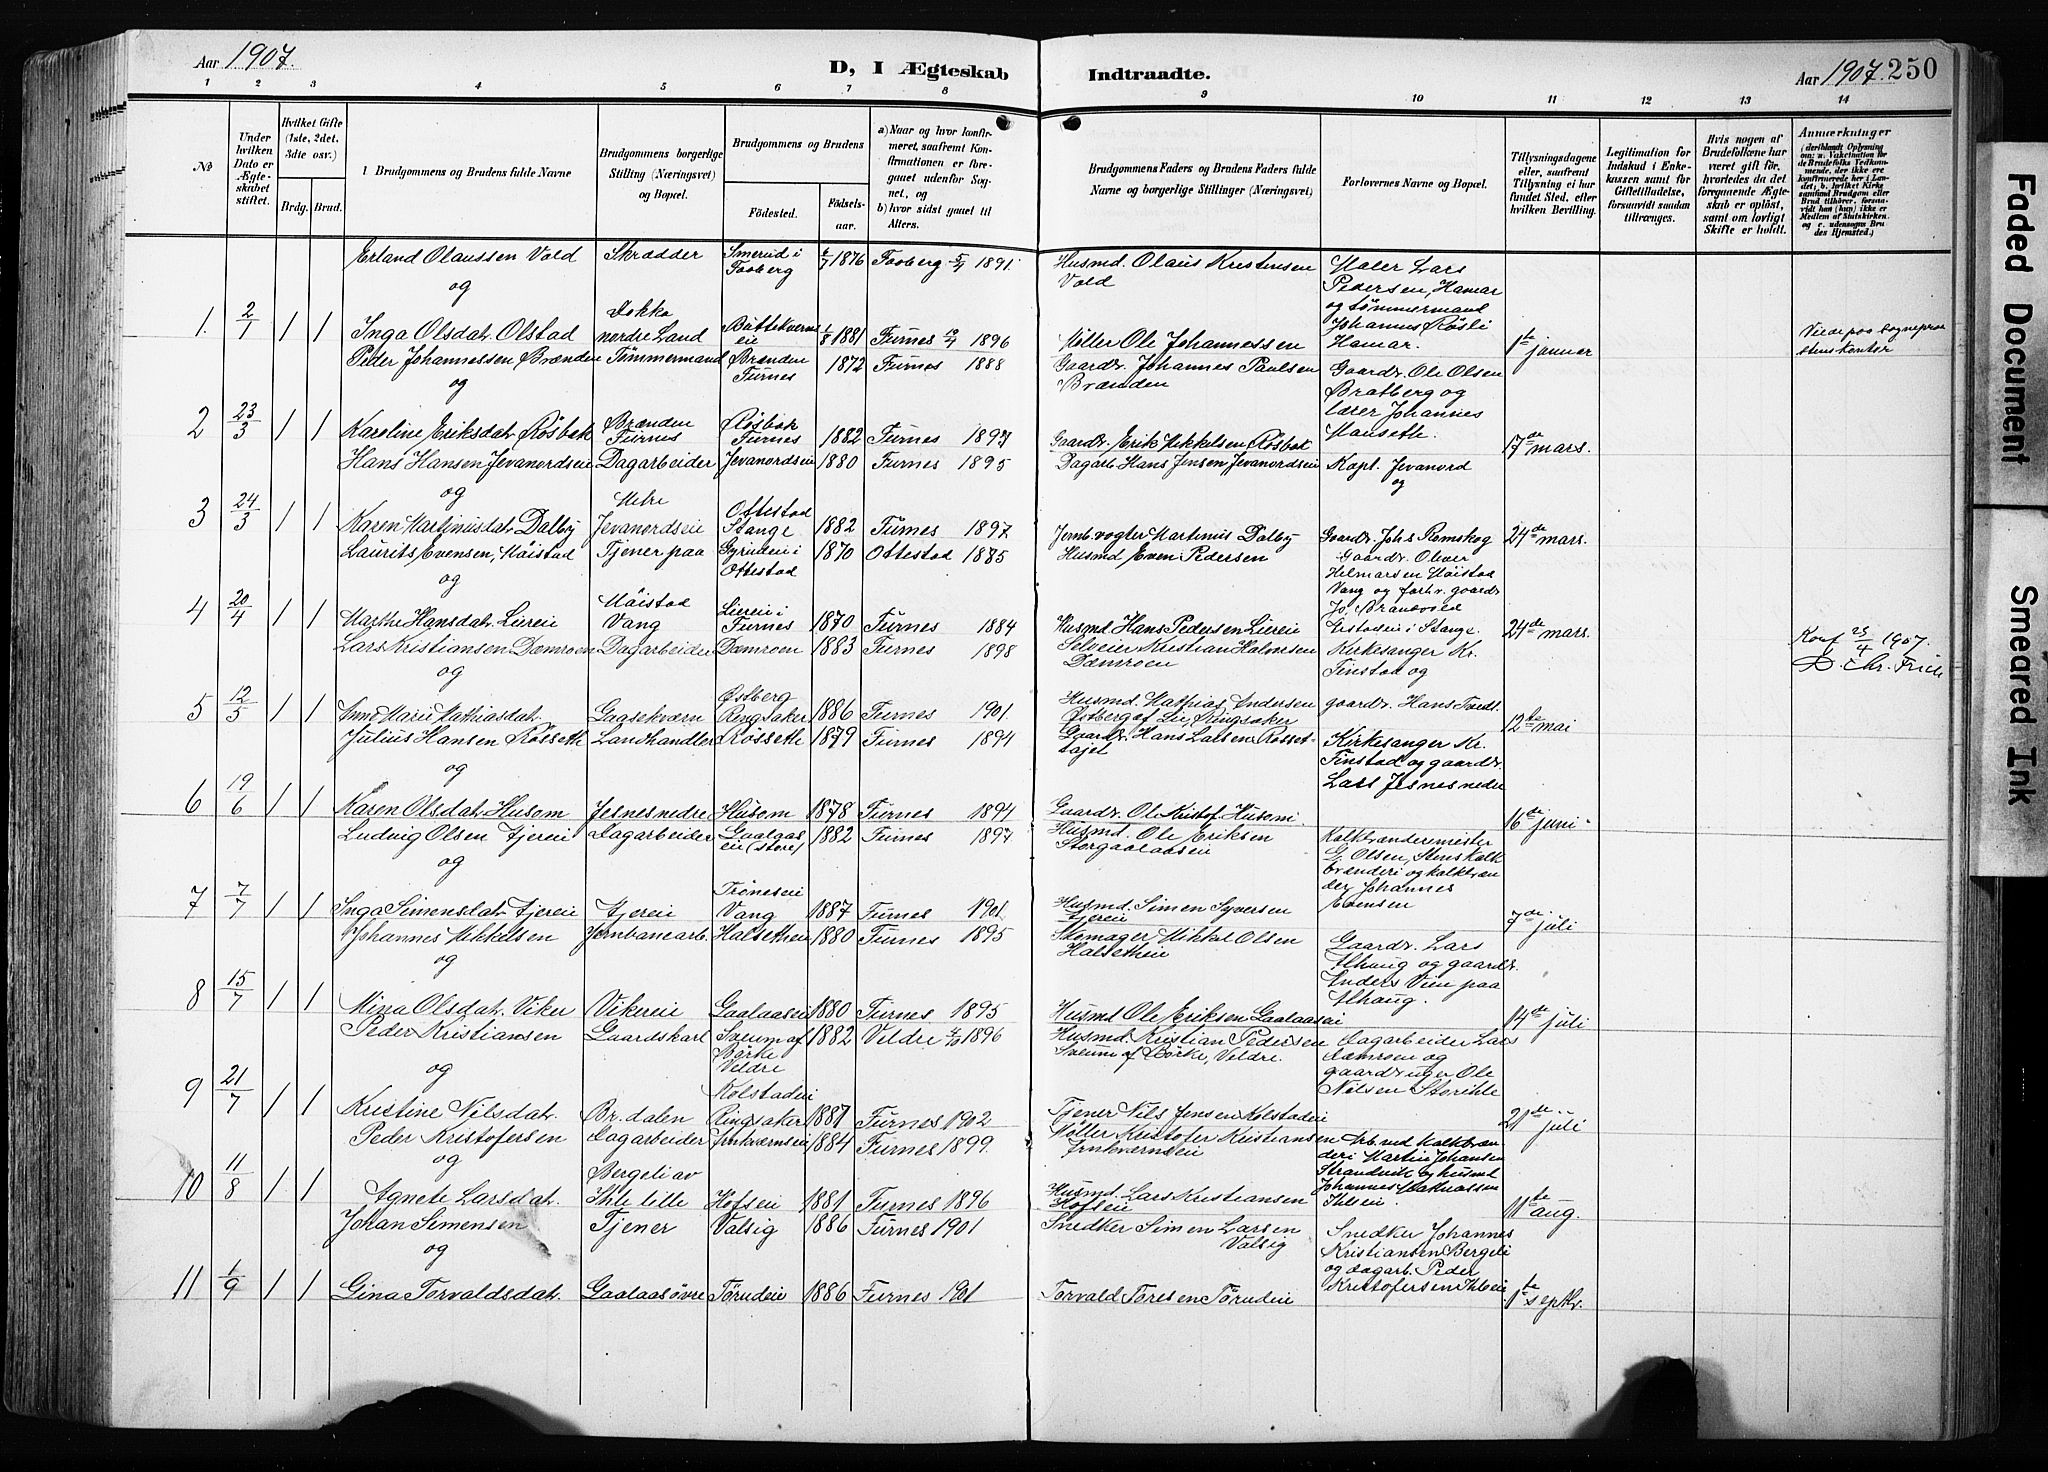 Aar 1907.
D, I Ægteskab
Indtraadte.
Aar 1907. 250
1 2 3 4 5 6 7 8 9 10 11 12 13 14
№
Under hvilken Dato er Ægteskabet stiftet.
Hvilket Gifte (1ste, 2det, 3die osv.)
Brdg. Brud.
Brudgommens og Brudens fulde Navne
Brudgommens borgerlige Stilling (Næringsvei) og Bopæl.
Brudgommens og Brudens
Fødested.
Fødselsaar.
a) Naar og hvor konfirmeret, saafremt Konfirmationen er foregaaet udenfor Sognet, og
b) hvor sidst gaaet til Alters.
Brudgommens Faders og Brudens Faders fulde Navne og borgerlige Stillinger (Næringsvei)
Forlovernes Navne og Bopæl.
Tillysningsdagene eller, saafremt Tillysning ei har fundet Sted, efter hvilken Bevilling.
Legitimation for Indskud i Enkekassen samt for Giftetilladelse, forsaavidt saadan tiltrænges.
Hvis nogen af Brudefolkene har været gift før, hvorledes da det foregaaende Ægteskab er opløst, samt om lovligt Skifte er holdt.
Anmærkninger
(deriblandt Oplysning om: a. Vakcination for de Brudefolks Vedkommende, der ikke ere konfirmerede her i Landet; b. hvilket Kirkesamfund Brudgom eller Brud tilhører, forsaavidt han (hun) ikke er Medlem af Statskirken, og c. udensogns Brudes Hjemsted.)
Erland Olaussen Vold Skrædder Smerud i Faaberg 6/7 1876 Faaberg 5/4 1891. Husmd. Olaus Kristensen Vold Maler Lars Pedersen, Hamar
og og tømmermand
1. 2/1 1 1 Inga Olsdat. Olstad Dokka nordre Land Büttekvernseie 1/8 1881 Furnes 1896 Møller Ole Johannessen Johannes Røsli Hamar. 1ste januar Viede paa sogneprestens kontor
Peder Johannessen Brænden Tømmermand Brænden Furnes 1872 Furnes 1888 Gaardr. Johannes Paulsen Brænden Gaardr. Ole Olsen Bratberg og
og lærer Johannes
2 23/3 1 1 Karoline Eriksdat. Røsbak Brænden Furnes Røsbak Furnes 1882 Furnes 1897 Gaardr. Erik Mikkelsen Røsbak Hanseth. 17de mars.
Hans Hansen Jevanordseie Dagarbeider Jevanordseie 1880 Furnes 1895 Dagarb. Hans Jensen Jevanordseie Kapt. Jevanord
og og
3 24/3 1 1 Karen Martinusdat. Dalby Jevanordseie Ottestad Stange 1882 Furnes 1897 Jernb.vogter Martinus Dalby Gaardr. Johs Romskog 24de mars.
Laurits Evensen, Maistad Tjener paa Gyrudeie i Ottestad 1870 Ottestad 1885 Husmd. Even Pedersen Gaardr. Oliver Helmarsen Maistad
og Vang og forhv. gaardr.
4 20/4 1 1 Marthe Hansdat. Liereie Maistad Vang Liereie i Furnes 1870 Furnes 1884 Husmd. Hans Pedersen Liereie i Stange. 24de mars
Lars Kristiansen Dæmroen Dagarbeider Dæmroen 1883 Furnes 1898 Selveier Kristian Halvorsen Dæmroen Kirkesanger Kr. Finstad og Konf 1907. Chr. Friis
og
5 12/5 1 1 Anne Marie Mathiasdat. Gaasekværn Østberg Ringsaker 1886 Furnes 1901. Husmd. Mathias Andersen Østberg af Lie, Ringsaker gaardr. Hans Tvedt. 12te mai
Julius Hansen Røsseth Landhandler Røsseth 1879 Furnes 1894 Gaardr. Hans Larsen Røssettajet Kirkesanger Kr. Finstad og gaardr.
og Lars Jesnes nedre
6 19/6 1 1 Karen Olsdat. Husom Jesnes nedre Husom 1878 Furnes 1894 Gaardr. Ole Kristof. Husom. 16de juni
Ludvig Olsen Tjereie Dagarbeider Gaalaaseie (store) 1882 Furnes 1897 Husmd. Ole Eriksen Storgaalaaseie Kalkbrændermester G. Olsen, Stens kalk
og brænderi og kalkbræn
7 7/7 1 1 Inga Simensdat. Tjereie Tjereie Trøneseie Vang 1887 Furnes 1901 Husmd. Simen Syversen Tjereie der Johannes Evensen 7de juli
Johannes Mikkelsen Jernbanearb. Halsetheie 1880 Furnes 1895 Skomager Mikkel Olsen Halsetheie Gaardr. Lars
og Alhaug og gaardr. Anders Vien paa
8 15/7 1 1 Mina Olsdat. Viker Vikereie Gaalaaseie 1880 Furnes 1895 Husmd Ole Eriksen Gaalaaseie Alhaug. 14de juli
Peder Kristiansen Gaardskarl Sveum af Børke Veldre 1882 Veldre 4/10 1896 Husmd. Kristian Pedersen Sveum af Børke, Veldre. Dagarbeider Lars Dæmroen og
og gaardbruger Ole
9 21/7 1 1 Kristine Nilsdat. Br. dalen Kolstadeie Ringsaker 1887 Furnes 1902 Tjener Nils Jensen Kolstadeie Nilsen Storihle 21de juli
Peder Kristofersen Dagarbeider Finkværnseie 1884 Furnes 1899. Møller Kristofer Kristiansen Finkværnseie Arb. ved Kalkbrænderi Martin Johansen
og Strandvik og husmd.
10 11/8 1 1 Agnete Larsdat. Bergeli av Ihle lille Hofseie 1881 Furnes 1896 Husmd. Lars Kristiansen Hofseie Johannes Ihleeie. 11te aug.
Johan Simensen Tjener Valsig 1886 Furnes 1901 Snedker Simen Larsen Valsig Snedker Johannes Kristiansen Bergeli
og og dagarb. Peder
11 1/9 1 1 Gina Torvaldsdat. Gaalaas øvre Tørudeie 1886 Furnes 1901 Torvald Toresen Tørudeie Kristofersen Ihleeie 1ste septbr.
Faded Document
Smeared Ink